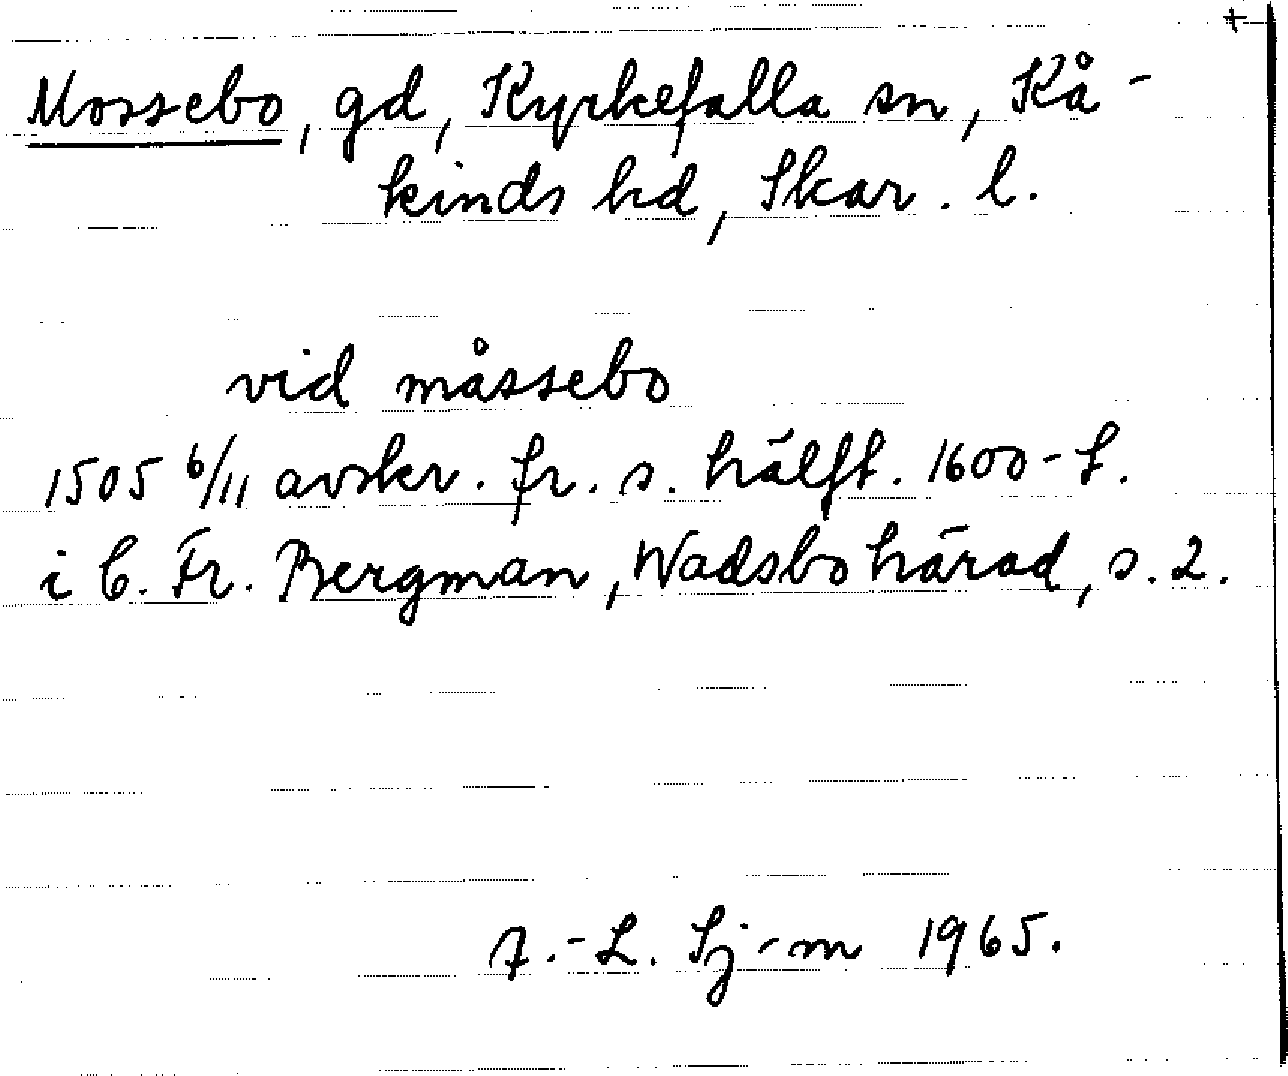 +
Mossebo, gd, Kyrkefalla sn, Kå-
kinds hd, Skar. l.
vid måssebo
1505 6/11 avskr. fr. s. hälft. 1600-t.
i C. Fr. Bergman, Wadsbo härad, s. 2.
A.-L. Sj-m 1965.